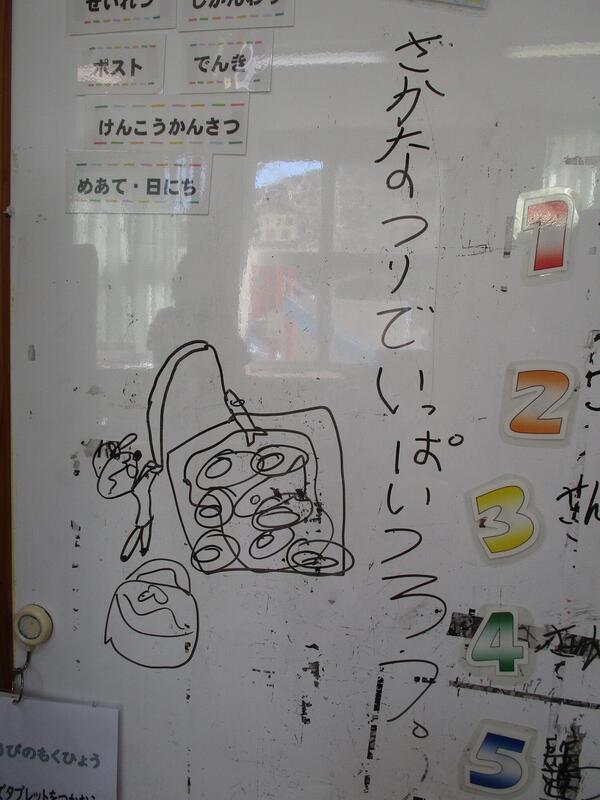 せいれつ
じかんわり
ポスト
でんき
けんこうかんさつ
めあて・日にち
ざかなのつりでいっぱいつろう。
1
2
3
4
5
びのもくひょう
タブレットを